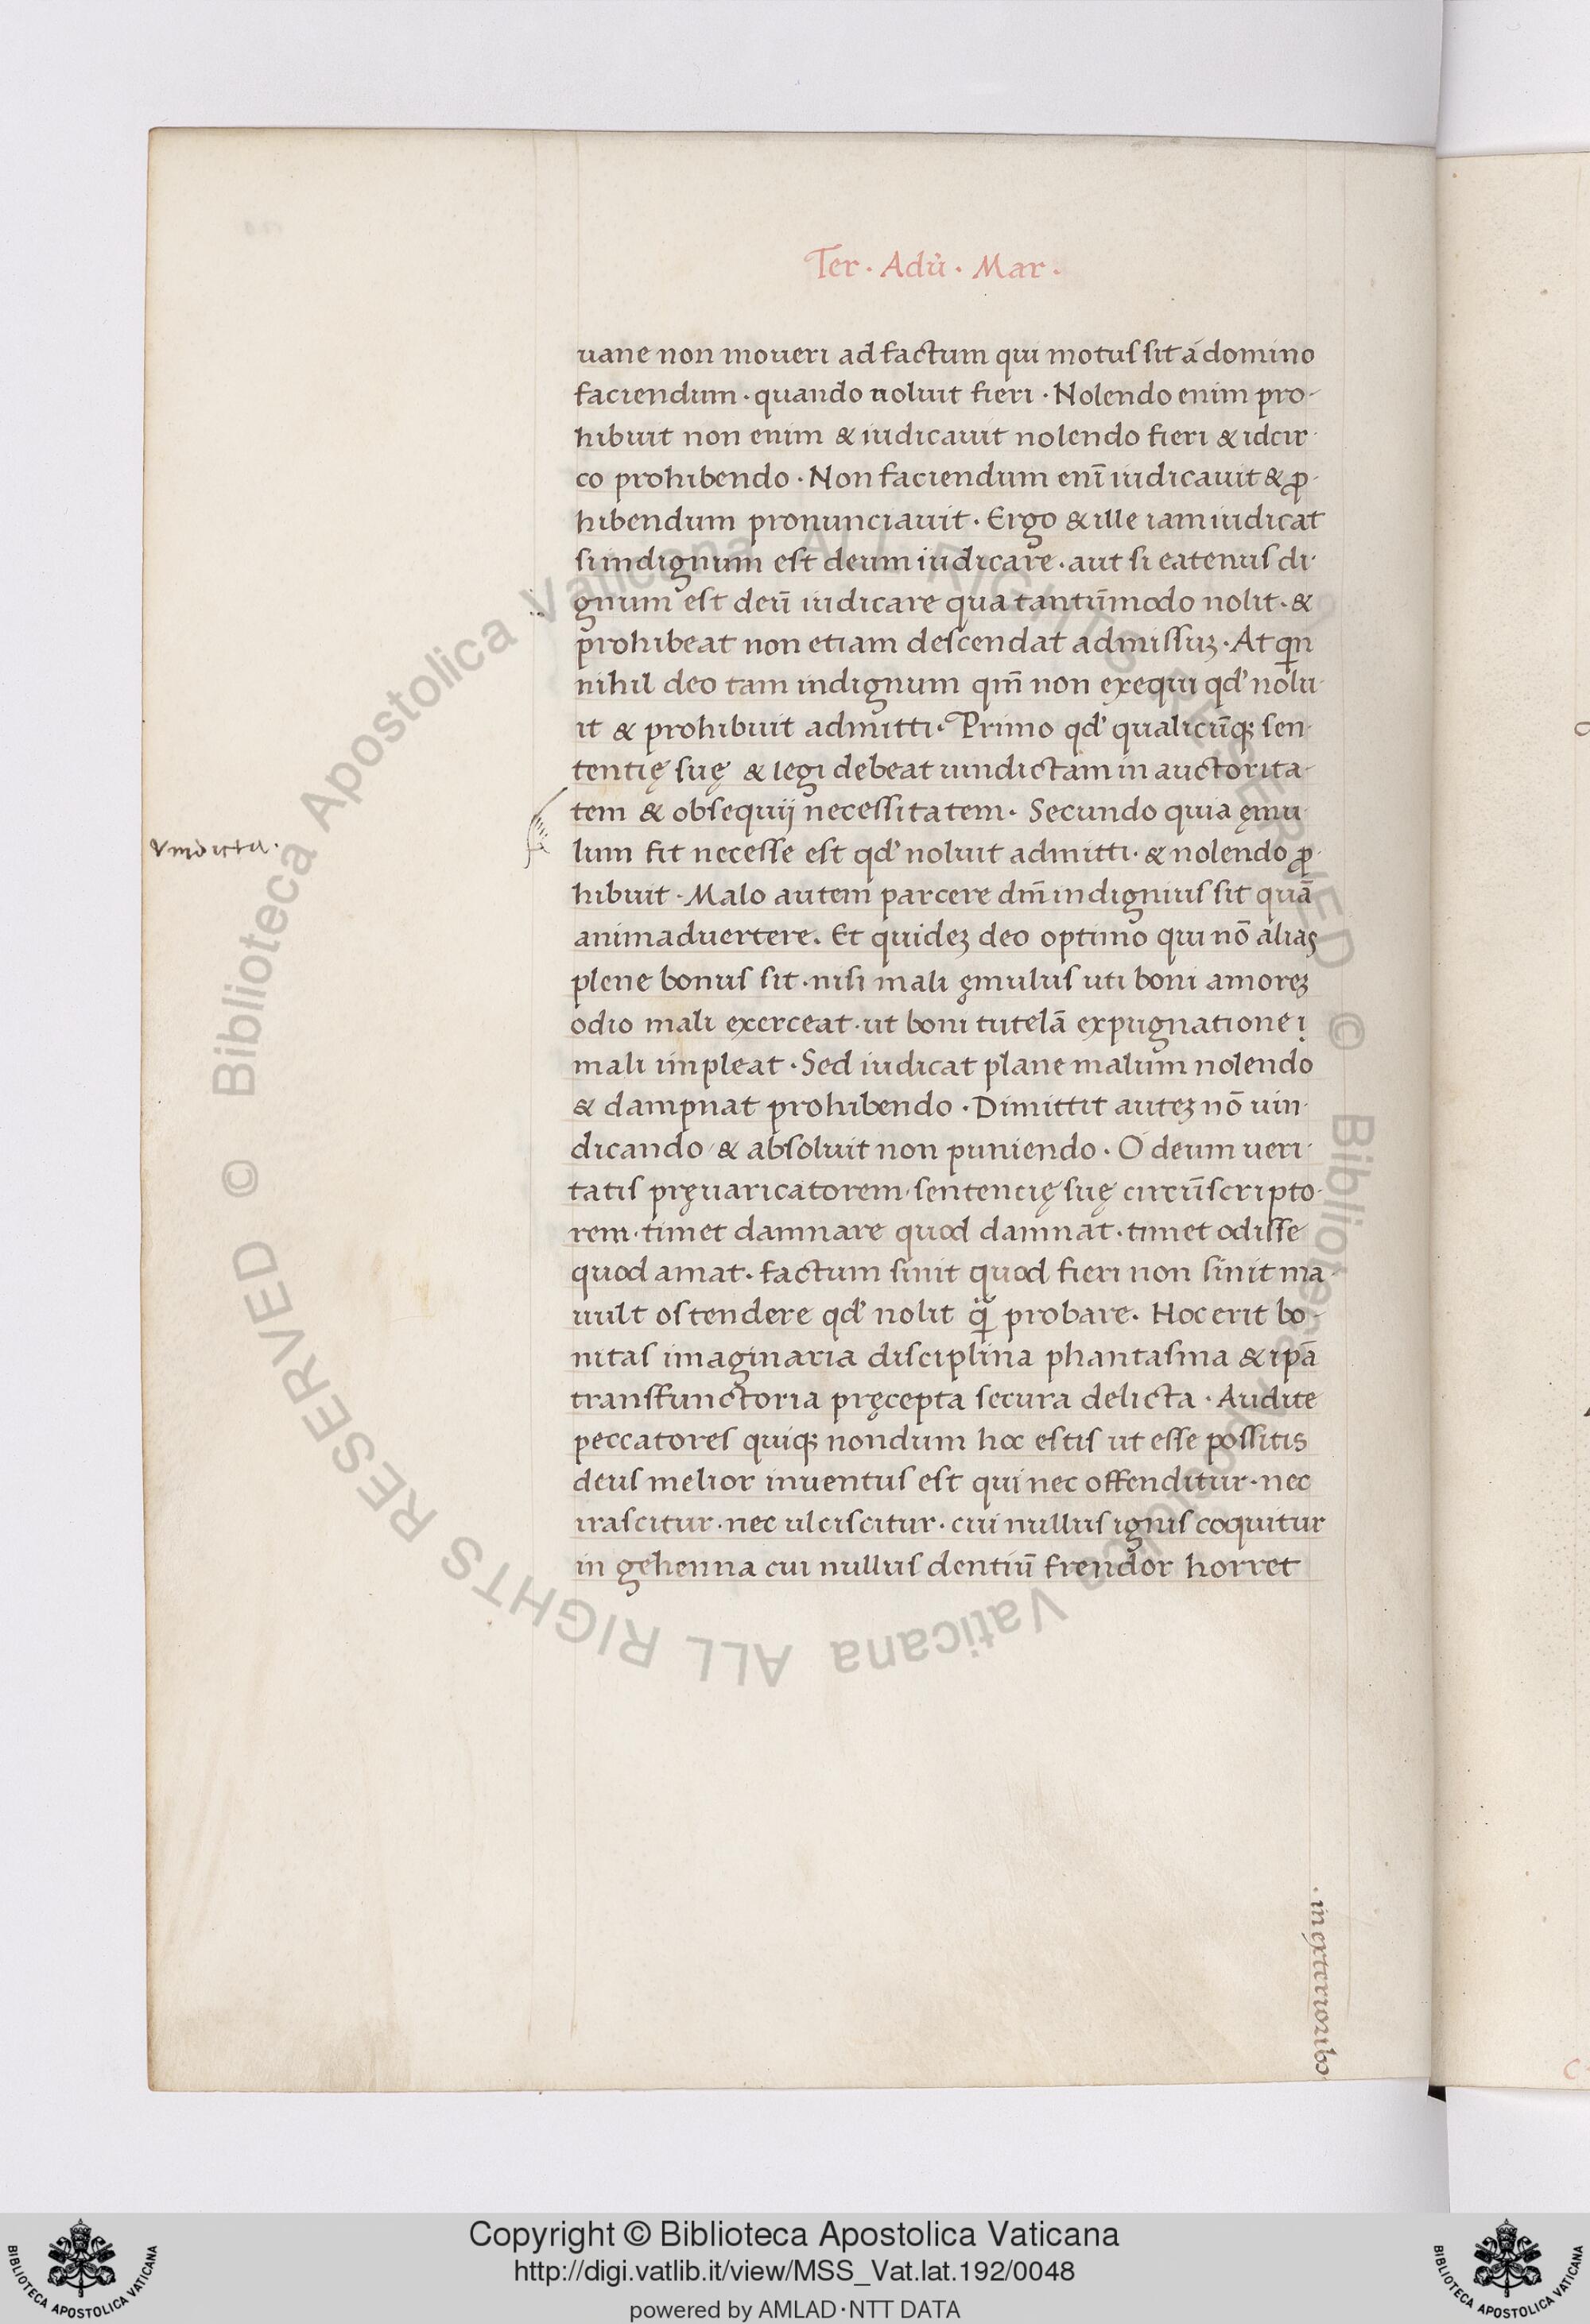 Ter · Adu̇ · Mar ·
uane non moueri ad factum qui motus sit á domino
faciendum · quando noluit fieri · Nolendo enim pro-
hibuit non enim & iudicauit nolendo fieri & idcir-
co prohibendo · Non faciendum eni̅ iudicauit & ꝓ-
hibendum pronunciauit · Ergo & ille iam iudicat
si indignum est deum iudicare · aut si eatenus di-
gnum est deu̅ iudicare qua tantu̅modo nolit · &
prohibeat non etiam descendat admissuꝫ · At qn
nihil deo tam indignum qm̅ non exequi qd' nolu-
it & prohibuit admitti · Primo qd' qualicu̅qꝫ sen-
tentię suę & legi debeat uindictam in auctorita-
tem & obsequij necessitatem · Secundo quia ęmu-
vindicta ·
lum fit necesse est qd' noluit admitti · & nolendo ꝓ-
hibuit · Malo autem parcere dm̅ indignius sit qua̅
animaduertere. Et quideꝫ deo optimo qui no̅ alias
plene bonus sit · nisi mali ęmulus uti boni amoreꝫ
odio mali exerceat · ut boni tutela̅ expugnatione ị
mali impleat · Sed iudicat plane malum nolendo
& dampnat prohibendo · Dimittit auteꝫ no̅ uin-
dicando & absoluit non puniendo · O deum ueri-
tatis pręuaricatorem · sentencię suę circu̅scripto-
rem · timet damnare quod damnat · timet odisse
quod amat · factum sinit quod fieri non sinit ma-
uult ostendere qd' nolit q̈ probare. Hoc erit bo-
nitas imaginaria disciplina phantasma & ipa̅
transfunctoria pręcepta secura delicta · Audite
peccatores quiqꝫ nondum hoc estis ut esse possitis
deus melior inuentus est qui nec offenditur · nec
irascitur · nec ulciscitur · cui nullus ignis coquitur
in gehenna cui nullus dentiu̅ frendor horret
· in exterioribꝰ
Copyright © Biblioteca Apostolica Vaticana
http://digi.vatlib.it/view/MSS_Vat.lat.192/0048
powered by AMLAD·NTT DATA
BIBLIOTECA APOSTOLICA VATICANA
BIBLIOTECA APOSTOLICA VATICANA
© Biblioteca Apostolica Vaticana ALL RIGHTS RESERVED © Biblioteca Apostolica Vaticana ALL RIGHTS RESERVED